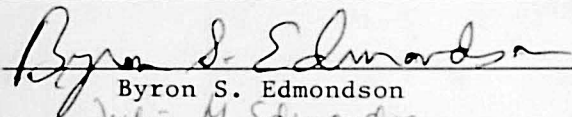 Byron S. Edmondson
Byron S. Edmondson